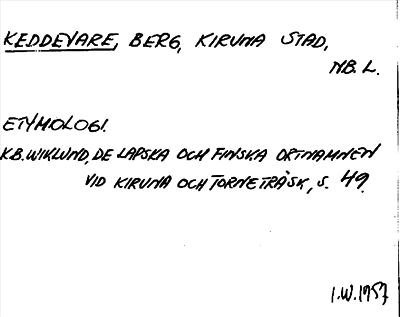 KEDDEVARE, BERG, KIRUNA STAD,
NB. L.
ETYMOLOGI.
K.B. WIKLUND, DE LAPSKA OCH FINSKA ORTNAMNEN
VID KIRUNA OCH TORNETRÄSK, S. 49.
I.W. 1957